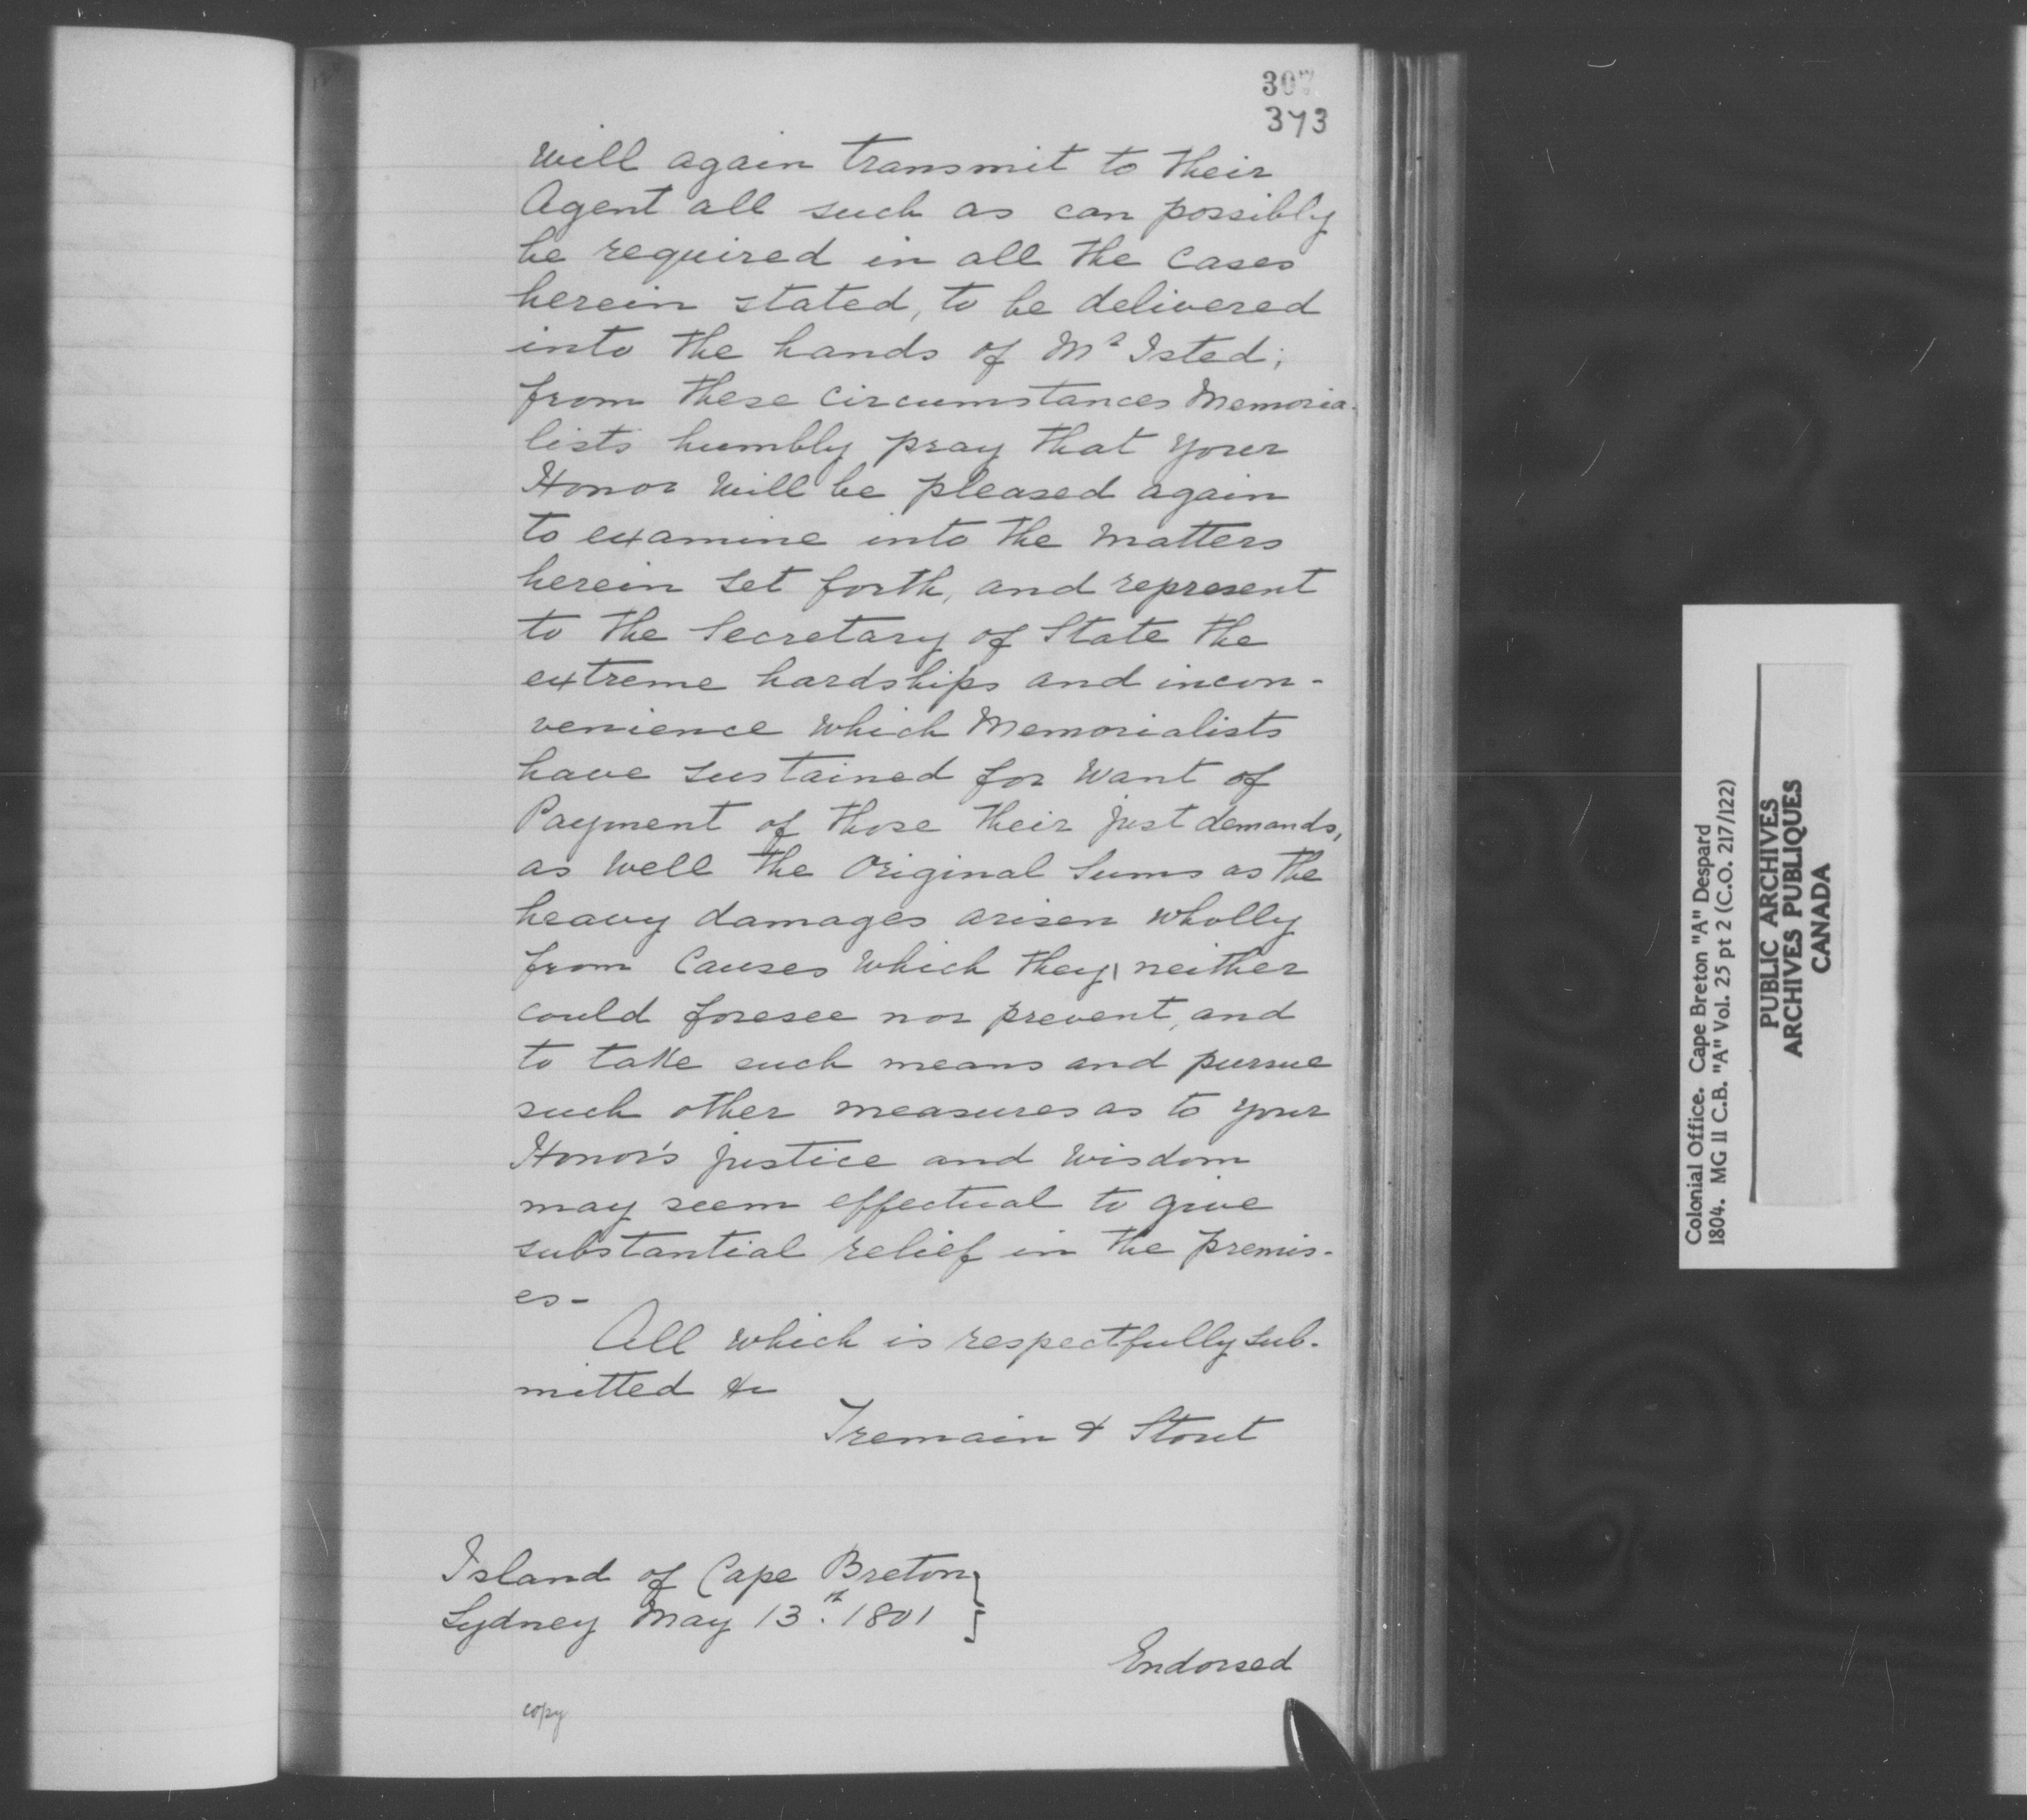 307
373
will again transmit to their
Agent all such as can possibly
be required in all the Cases
herein stated, to be delivered
into the hands of Mr Isted;
from these circumstances Memoria-
lists humbly pray that your
Honor will be pleased again
to examine into the Matters
herein set forth, and represent
to the Secretary of State the
extreme hardships and incon-
venience which Memorialists
have sustained for want of
Payment of those their just demands,
as well the Original Sums as the
heavy damages arisen wholly
from Causes which they neither
could foresee nor prevent, and
to take such means and pursue
such other measures as to your
Honor's justice and wisdom
may seem effectual to give
substantial relief in the premis-
es-
All which is respectfully sub-
mitted &c
Tremain & Stout
Island of Cape Breton
Sydney May 13th. 1801
Endorsed
copy
Colonial Office. Cape Breton "A" Despard
1804. MG 11 C.B. "A" Vol. 25 pt 2 (C.O. 217/122)
PUBLIC ARCHIVES
ARCHIVES PUBLIQUES
CANADA